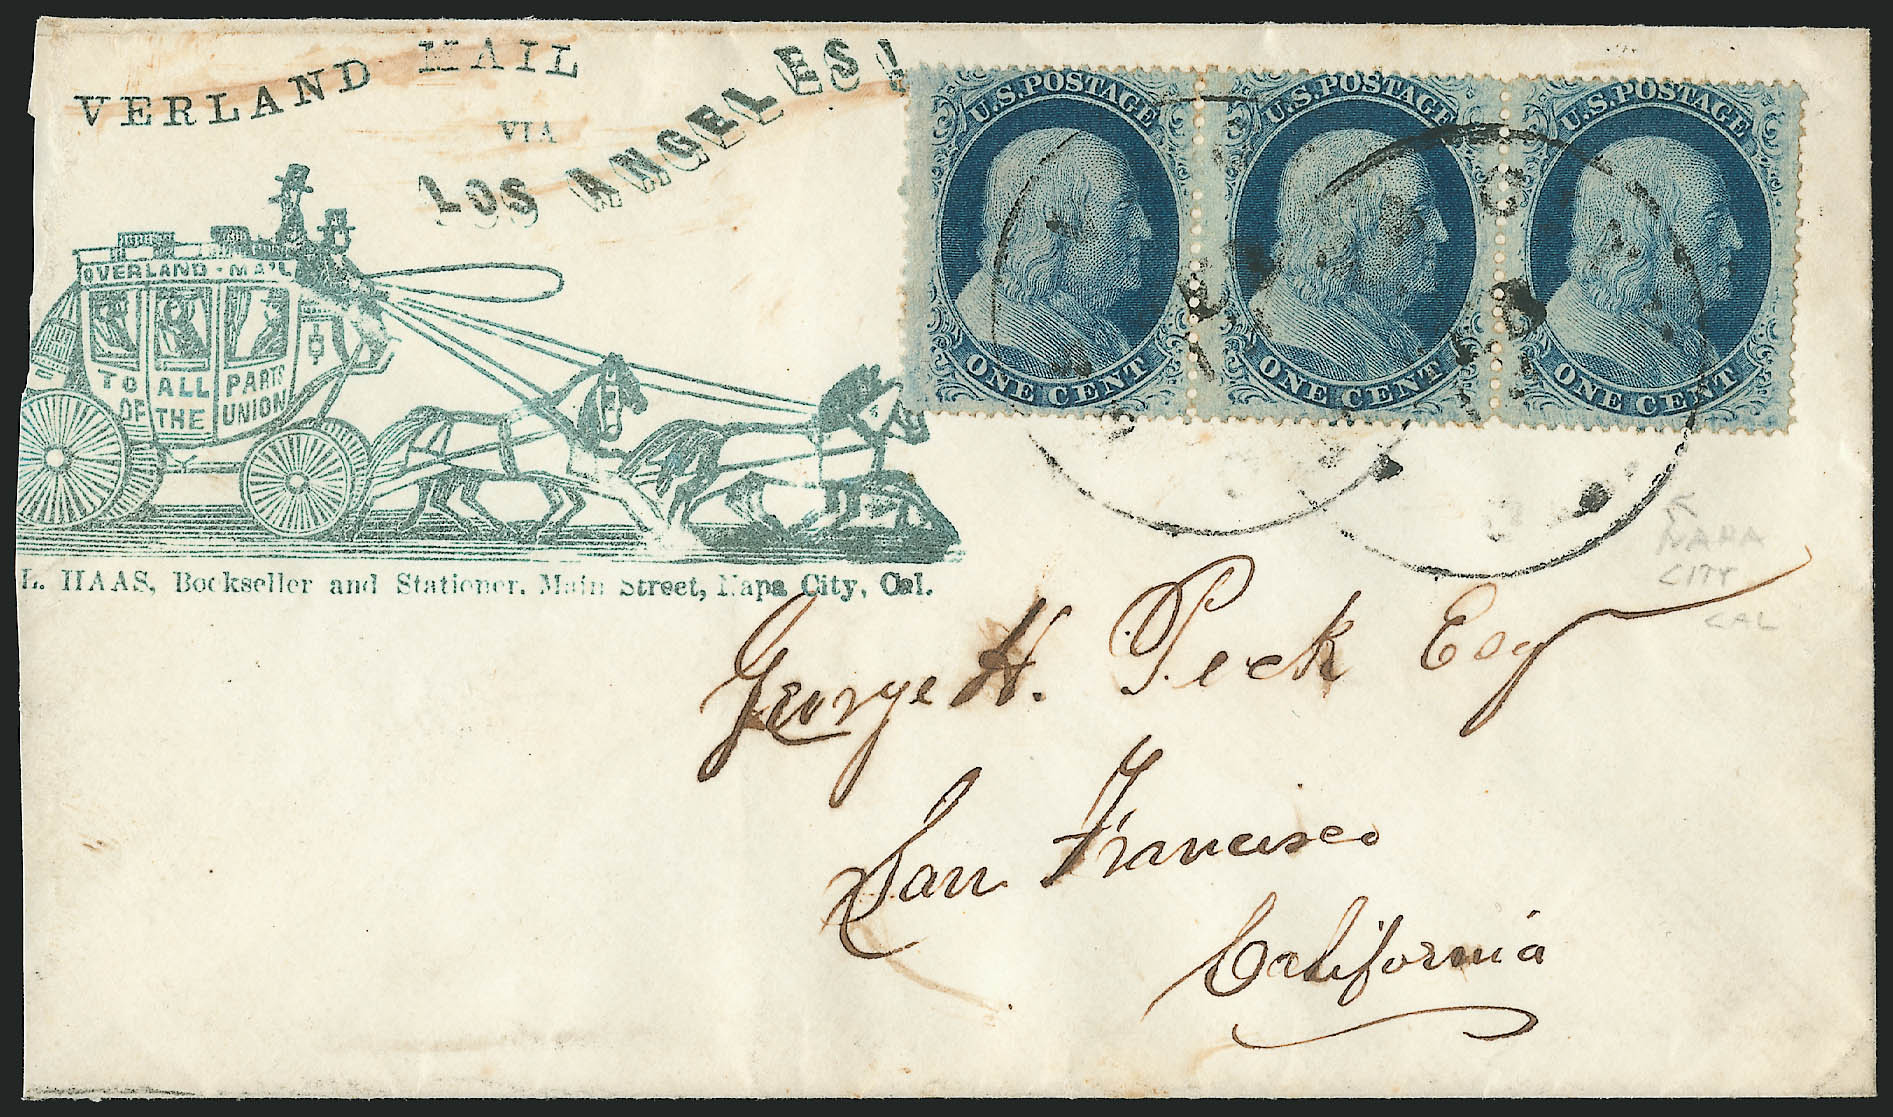 VERLAND MAIL
VIA
LOS ANGELES!
OVERLAND·MAIL
TO ALL PARTS
OF THE UNION
L. HAAS, Bookseller and Stationer. Main Street, Napa City, Cal.
U.S.POSTAGE
ONE CENT
U.S.POSTAGE
ONE CENT
U.S.POSTAGE
ONE CENT
NAPA
CITY
CAL
George H. Peck Esq
San Francisco
California